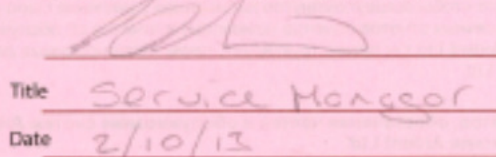 Title Service Manager
Date 2/10/13